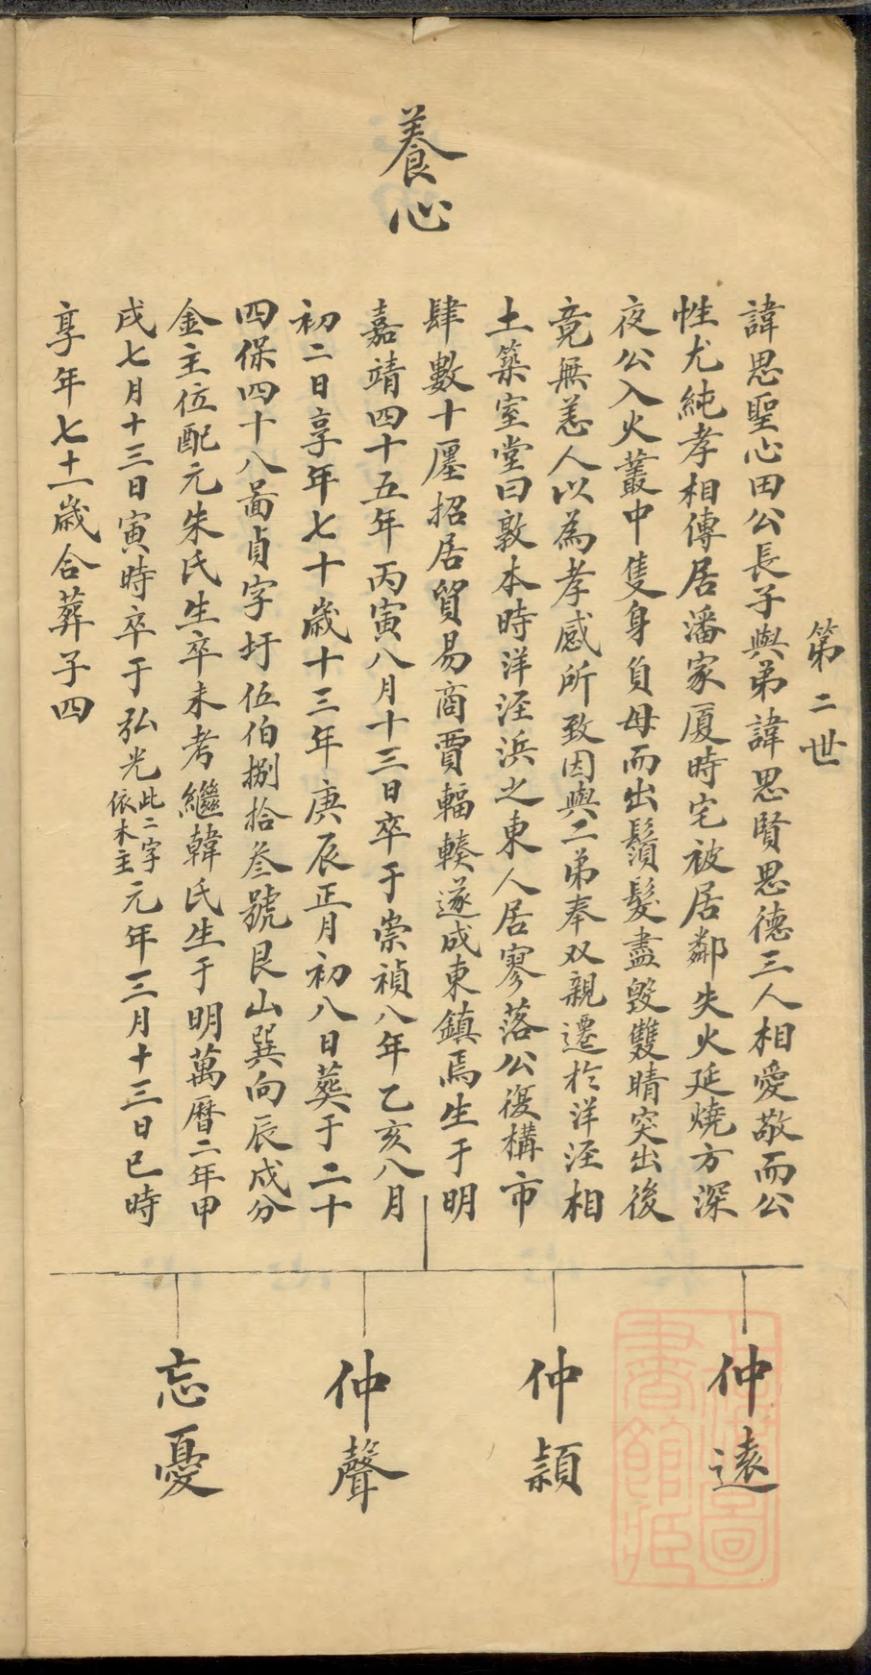 第二世
養心
諱思聖心田公長子與弟諱思賢思德三人相愛敬而公
性尤純孝相傳居潘家厦時宅被居鄰失火延燒方深
夜公入火叢中隻身負母而出鬚髮盡毀雙睛突出後
竟無恙人以為孝感所致因與二弟奉双親遷於洋涇相
土築室堂曰敦本時洋涇浜之東人居寥落公復構市
肆數十廛招居貿易商賈輻輳遂成東鎮焉生于明
嘉靖四十五年丙寅八月十三日卒于崇禎八年乙亥八月
初二日享年七十歲十三年庚辰正月初八日葬于二十
四保四十八啚貞字圩伍伯捌拾叁號艮山巽向辰戌分
金主位配元朱氏生卒未考繼韓氏生于明萬曆二年甲
戌七月十三日寅時卒于弘光此二字依木主元年三月十三日巳時
享年七十一歲合葬子四
仲遠
仲穎
仲聲
忘憂
上海圖書館藏